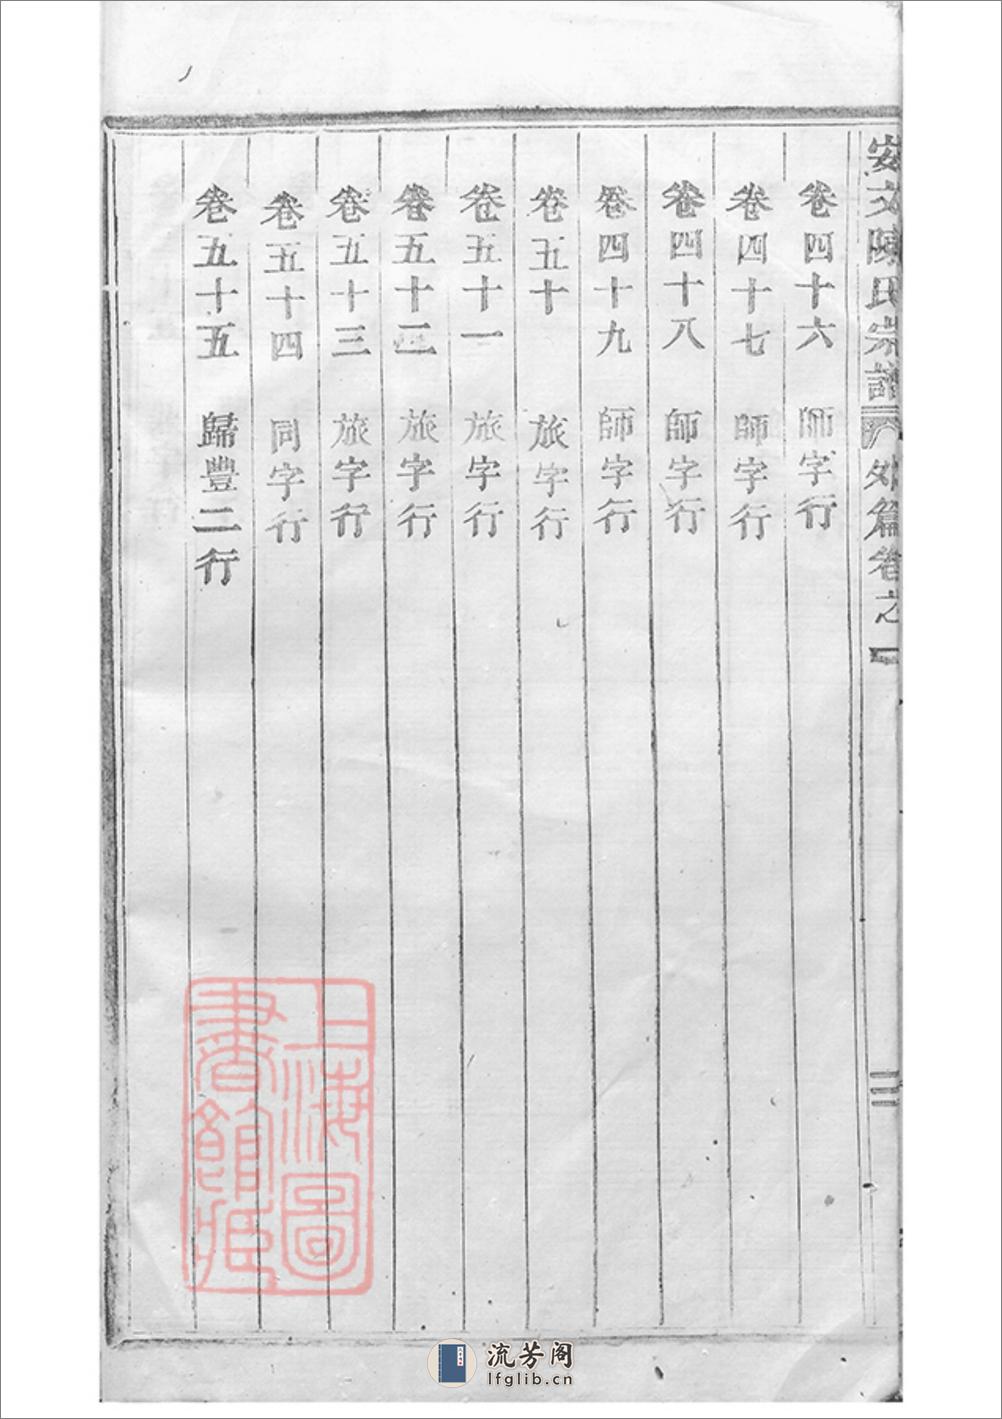 安文陳氏宗譜 外篇卷之一
卷四十六 師字行
卷四十七 師字行
卷四十八 師字行
卷四十九 師字行
卷五十 旅字行
卷五十一 旅字行
卷五十二 旅字行
卷五十三 旅字行
卷五十四 同字行
卷五十五 歸豐二行
上海圖
書館藏
流芳阁
lfglib.cn